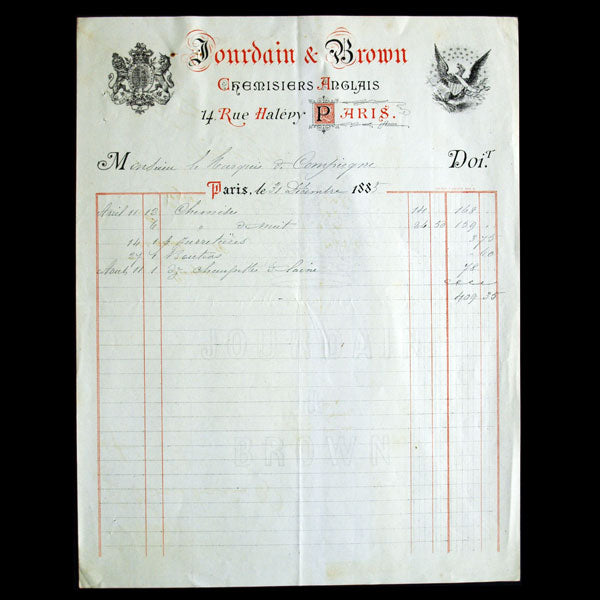 Jourdain & Brown
Chemisiers Anglais
14 Rue Halévy Paris.
Monsieur le Marquis de Compiegne Doit
Paris, le 31 Décembre 1885
Avril 11 12 Chemises 14 168
6 " de nuit 159
14 1 p jarretières 3 75
27 1 Boutons 60
11 1 Chaussettes de laine 78
409 35
JOURDAIN
&
BROWN